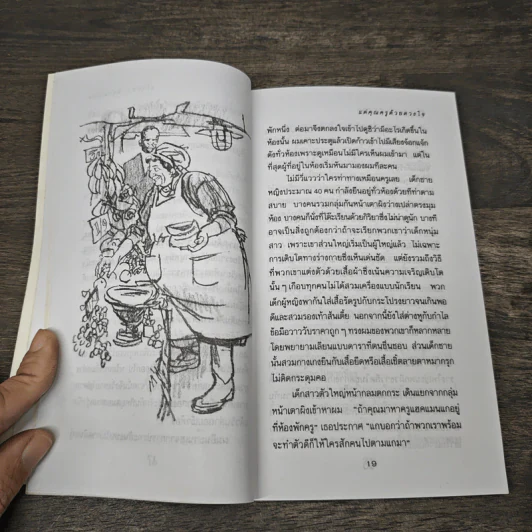 แด่คุณครูด้วยดวงใจ
พักหนึ่ง ต่อมาจึงตกลงใจเข้าไปดูซิว่ามีอะไรเกิดขึ้นใน
ห้องนั้น ผมเคาะประตูแล้วเปิดก้าวเข้าไปมีเสียงจ้อกแจ้ก
ดังทั่วห้องเพราะดูเหมือนไม่มีใครเห็นผมเข้ามา แต่ใน
ที่สุดผู้ที่อยู่ในห้องเริ่มหันมามองผมทีละคน
ไม่มีวี่แววว่าใครท่าทางเหมือนครูเลย เด็กชาย
หญิงประมาณ 40 คน กำลังยืนอยู่ทั่วห้องด้วยทีท่าตาม
สบาย บางคนรวมกลุ่มกันหน้าเตาผิงว่างเปล่าตรงมุม
ห้อง บางคนก็นั่งที่โต๊ะเรียนด้วยกิริยาซึ่งไม่น่าดูนัก บางที
อาจเป็นสิ่งถูกต้องกว่าถ้าจะเรียกพวกเขาว่าเด็กหนุ่ม
สาว เพราะเขาส่วนใหญ่เริ่มเป็นผู้ใหญ่แล้ว ไม่เฉพาะ
การเติบโตทางร่างกายซึ่งเห็นเด่นชัด แต่ยังรวมถึงวิธี
ที่พวกเขาแต่งตัวด้วยเสื้อผ้าซึ่งเน้นความเจริญเติบโต
นั้น ๆ เกือบทุกคนไม่ได้สวมเครื่องแบบนักเรียน พวก
เด็กผู้หญิงพากันใส่เสื้อรัดรูปกับกระโปรงยาวจนเกินพอ
ดีและสวมรองเท้าส้นเตี้ย นอกจากนี้ยังใส่ต่างหูกับกำไล
ข้อมือวาววับราคาถูก ๆ ทรงผมของพวกเขาก็หลากหลาย
โดยพยายามเลียนแบบดาราที่ตนชื่นชอบ ส่วนเด็กชาย
นั้นสวมกางเกงยีนกับเสื้อยืดหรือเสื้อเชิ้ตลายตาหมากรุก
ไม่ติดกระดุมคอ
เด็กสาวตัวใหญ่หน้ากลมตกกระ เดินแยกจากกลุ่ม
หน้าเตาผิงเข้าหาผม “ถ้าคุณมาหาครูแฮคแมนแกอยู่
ที่ห้องพักครู” เธอประกาศ “แกบอกว่าถ้าพวกเราพร้อม
จะทำตัวดีก็ให้ใครสักคนไปตามแกมา”
19